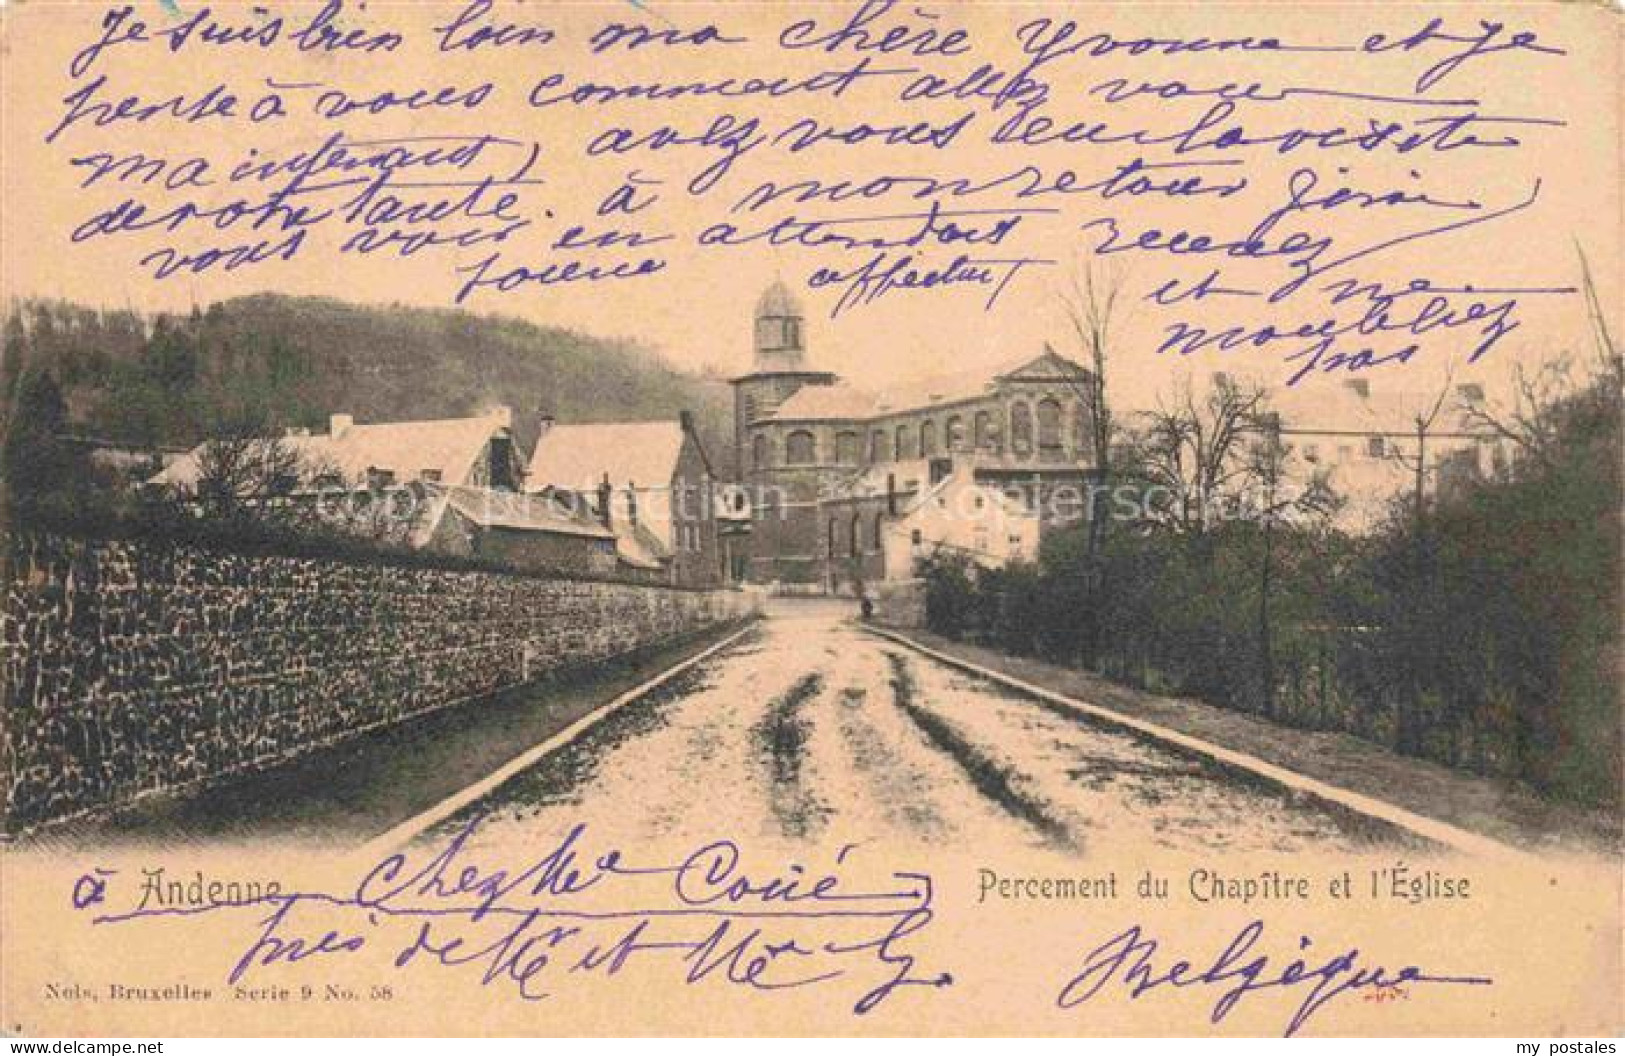 Je suis bien loin ma chère Yvonne et je
pense à vous comment allez vous
maintenant, avez vous eu la visite
de votre tante. à mon retour j'irai
vous voir en attendant recevez
affectueux
et ne
m'oubliez
pas
copy protection Kopierschutz
à Andenne chez Me Coué
Percement du Chapître et l'Église
près de Mr et Me G.
Belgique
Nels, Bruxelles Serie 9 No. 58
www.my-postales.com
my postales